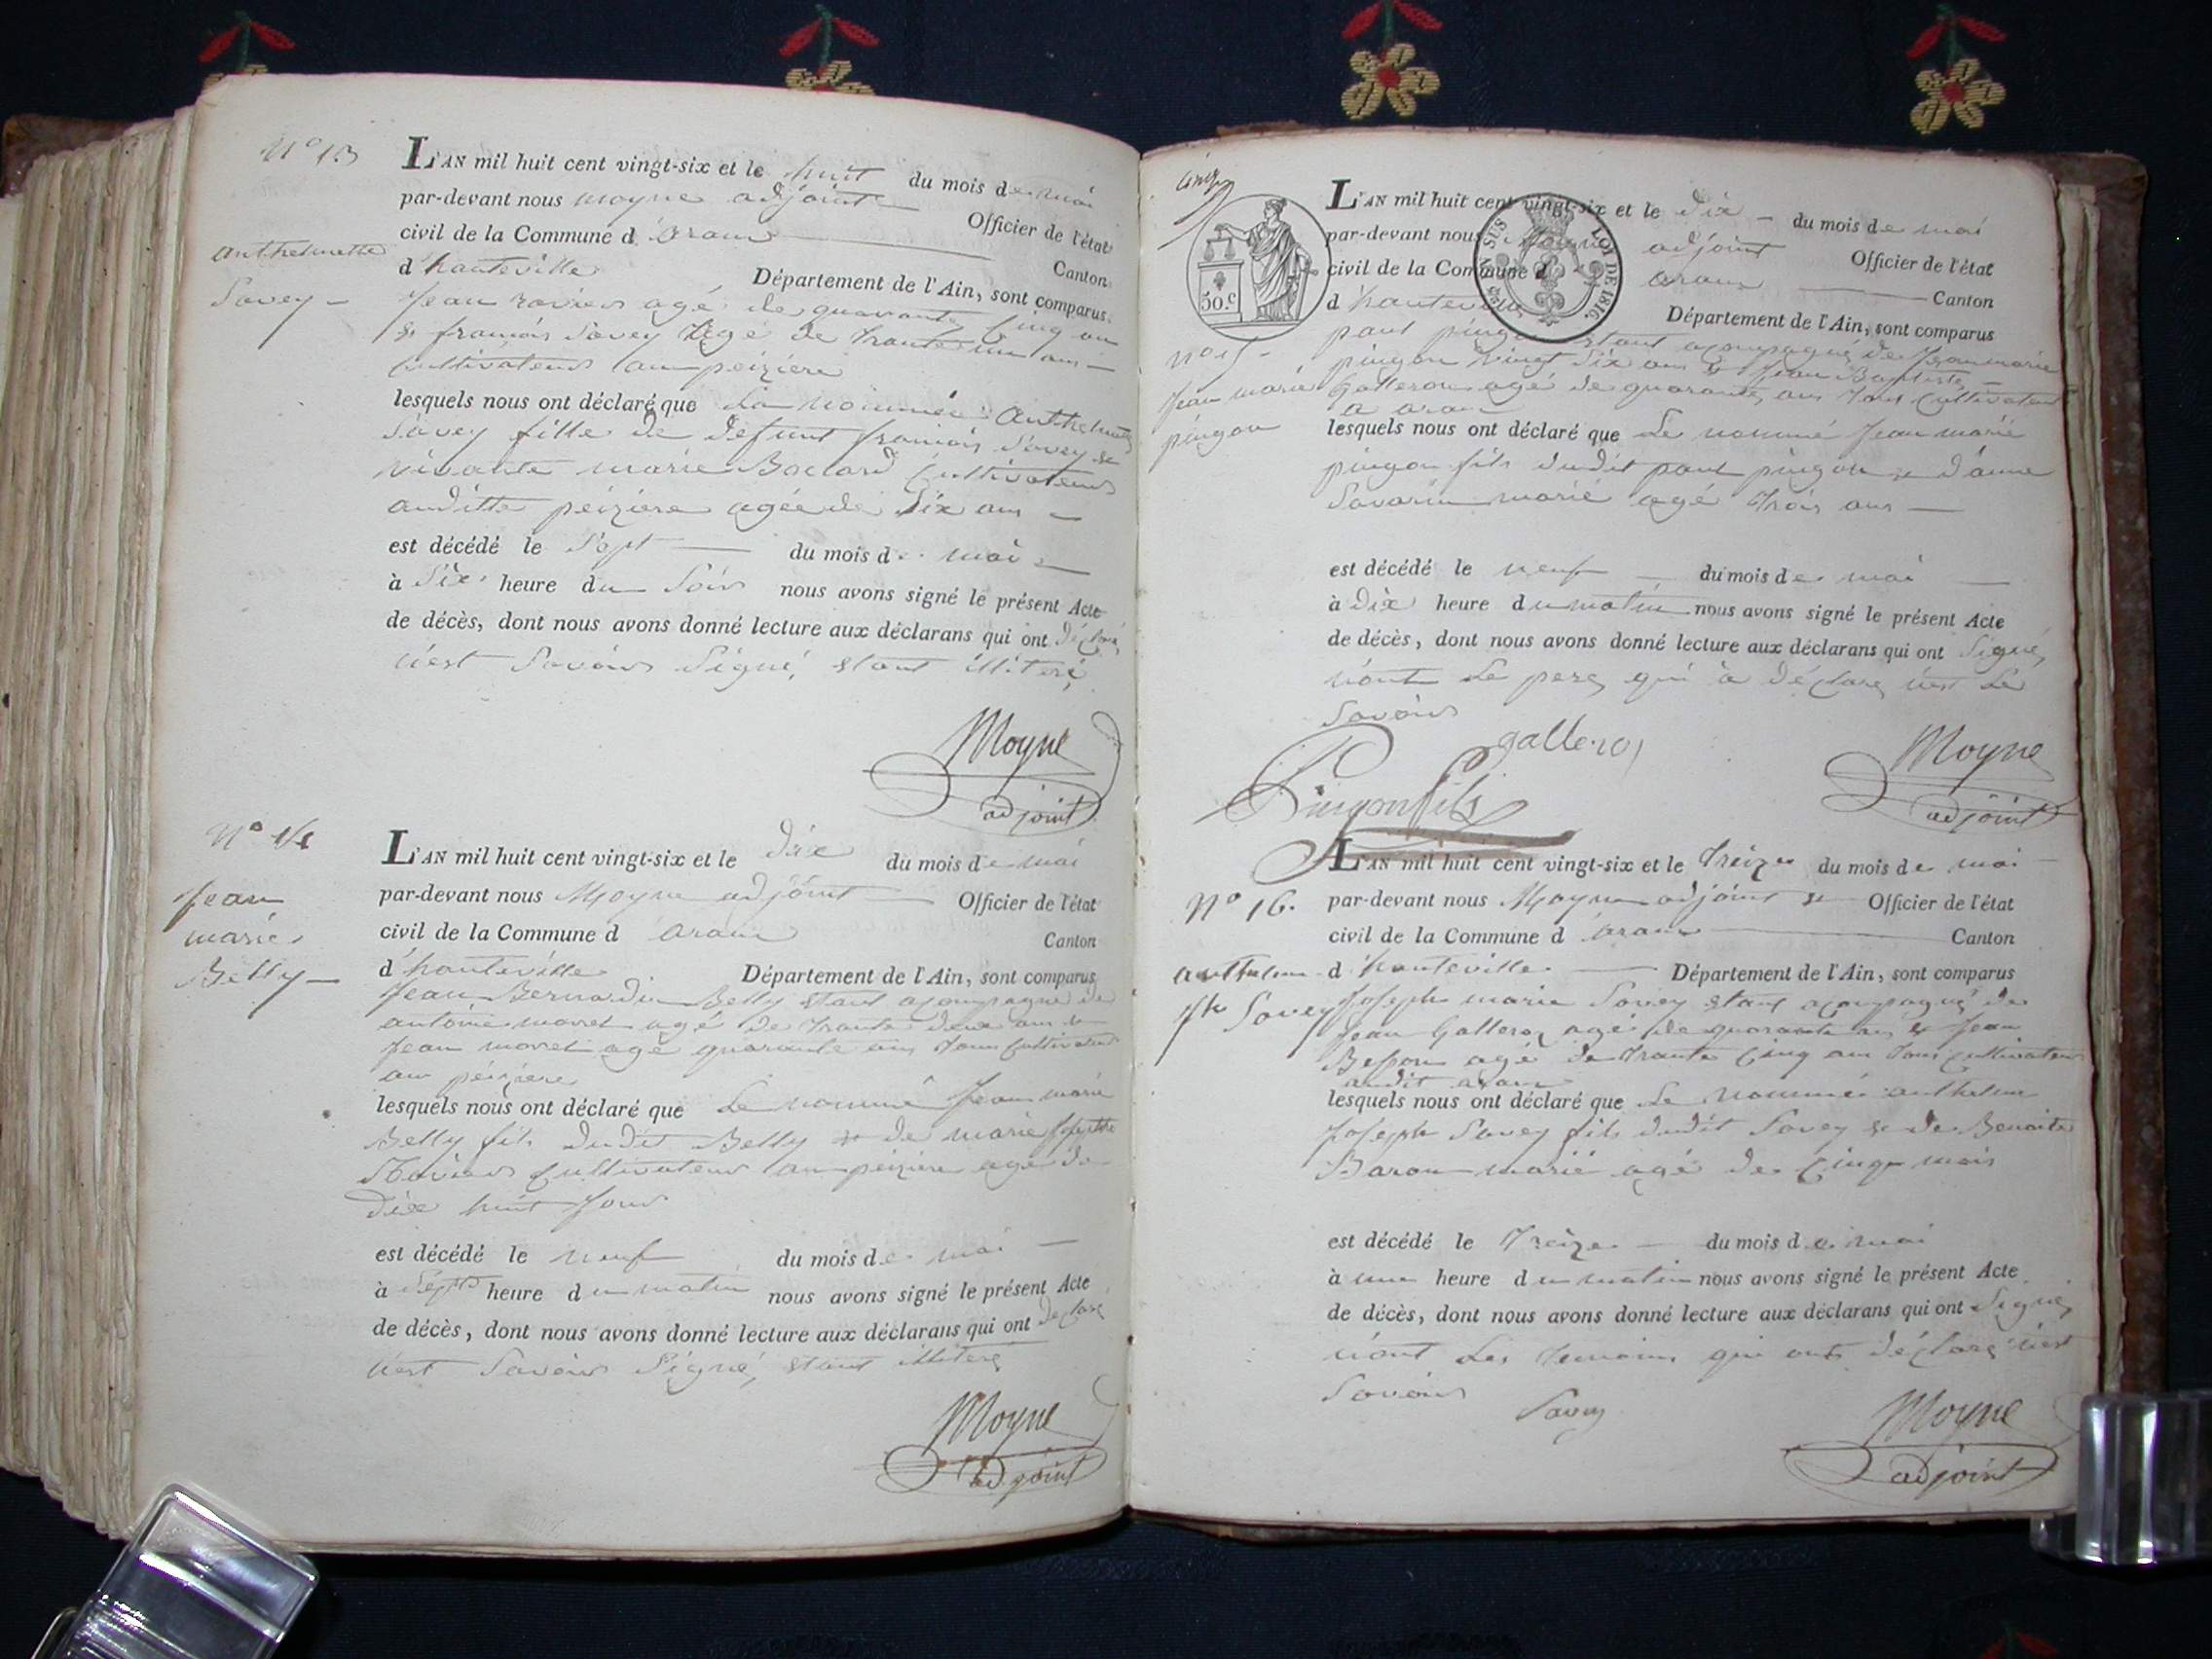 N° 13
L'AN mil huit cent vingt-six et le huit du mois de mai
par-devant nous moyne adjoint Officier de l'état
civil de la Commune d'aranc Canton
d'hauteville Département de l'Ain, sont comparus
anthelmette
Savey
Jean agé de quarante cinq an
& francois Savey agé de trante un ans
Cultivateurs au peizière
lesquels nous ont déclaré que La nommée Anthelmette
Savey fille de defunt francois Savey &
vivante marie Bocard Cultivateurs
auditte peiziere agée de Six ans
est décédé le Sept du mois de mai
à Six heure du Soir nous avons signé le présent Acte
de décès, dont nous avons donné lecture aux déclarans qui ont déclaré
n'est Savoir Signé, etant illiteré
Moyne
adjoint
N° 14
L'AN mil huit cent vingt-six et le dix du mois de mai
par-devant nous Moyne adjoint Officier de l'état
civil de la Commune d'aranc Canton
d'hauteville Département de l'Ain, sont comparus
Jean
marie
Belly
Jean Bernardin Belly etant acompagné de
antoine morret agé de trante deux ans &
Jean morret agé quarante ans tous Cultivateurs
au peiziere
lesquels nous ont déclaré que Le nommé Jean marie
Belly fils dudit Belly & de marie Josephte
Cultivateurs au peiziere agé de
dix huit Jour
est décédé le neuf du mois de mai
à Sept heure du matin nous avons signé le présent Acte
de décès, dont nous avons donné lecture aux déclarans qui ont déclaré
n'est Savoir Signé, etant illiteré
Moyne
adjoint
cinq
L'AN mil huit cent vingt-six et le dix du mois de mai
par-devant nous Moyne adjoint Officier de l'état
civil de la Commune d'aranc Canton
d'hauteville Département de l'Ain, sont comparus
50.C
EN SUS LOI DE 1816.
n° 15
Jean marie
pingon
paul pingon etant acompagné de Jean marie
pingon vingt Six ans & Jean Baptiste
Galleron agé de quarante ans tous Cultivateurs
a aranc
lesquels nous ont déclaré que Le nommé Jean marie
pingon fils dudit paul pingon & d'anne
Savarin marié agé trois ans
est décédé le neuf du mois de mai
à dix heure du matin nous avons signé le présent Acte
de décès, dont nous avons donné lecture aux déclarans qui ont Signé,
n'ont Le pere qui à déclaré n'est Le
Savoir
galleron
Pingon fils
Moyne
adjoint
N° 16.
L'AN mil huit cent vingt-six et le treize du mois de mai
par-devant nous Moyne adjoint Officier de l'état
civil de la Commune d'aranc Canton
d'hauteville Département de l'Ain, sont comparus
anthelme
Jph Savey
Joseph marie Savey etant acompagné de
Jean Galleron agé de quarante ans & Jean
Besson agé de trante Cinq ans tous Cultivateurs
audit aranc
lesquels nous ont déclaré que Le nommé anthelme
Joseph Savey fils dudit Savey & de Benoite
Baron marié agé de Cinq mois
est décédé le treize du mois de mai
à une heure du matin nous avons signé le présent Acte
de décès, dont nous avons donné lecture aux déclarans qui ont Signé,
n'ont Les temoins qui ont déclaré n'est
Savoir
Savey
Moyne
adjoint